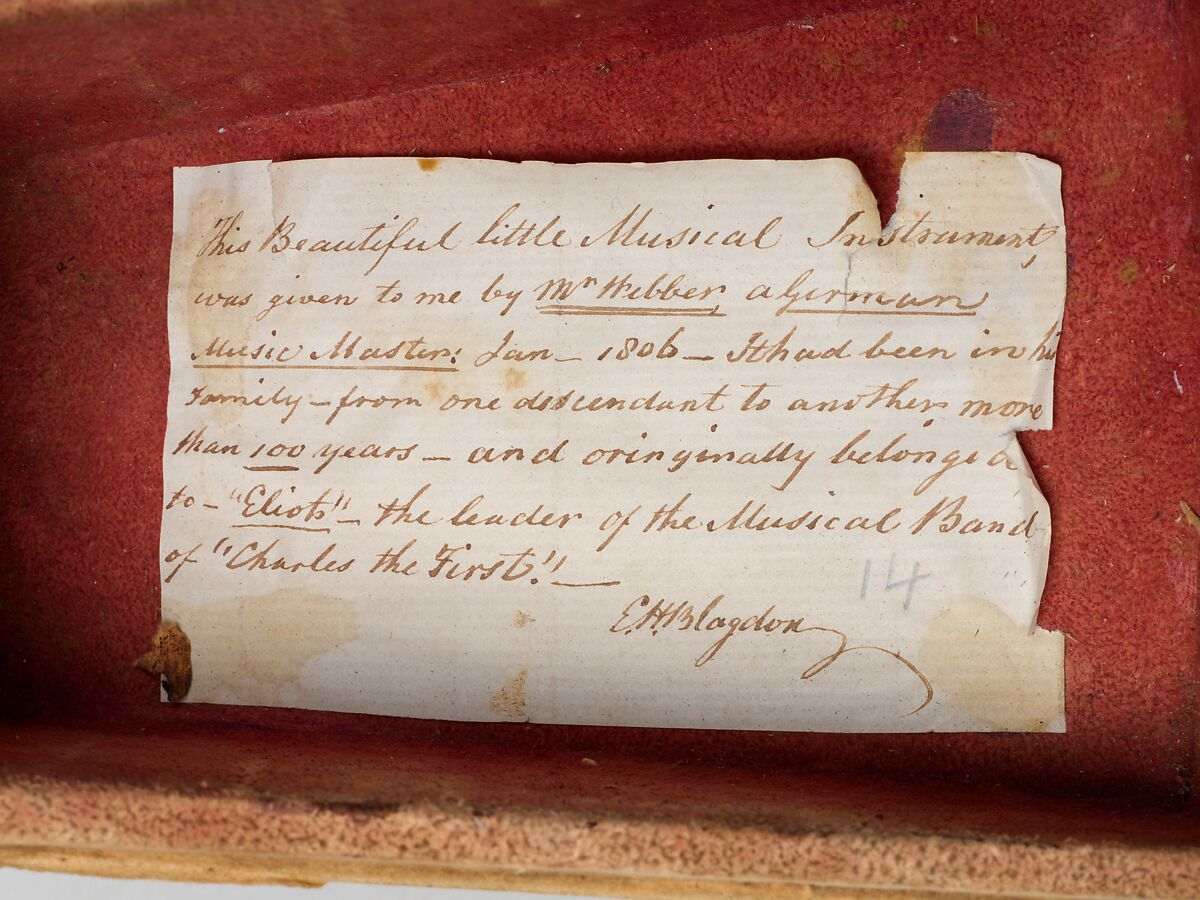 This Beautiful little Musical Instrument,
was given to me by Mr Webber, a German
Music Master: Jan – 1806 – It had been in his
Family – from one descendant to another more
than 100 years – and oringinally belonged
to – "Eliots" – the leader of the Musical Band
of "Charles the First." —
14
E.H.Blagdon